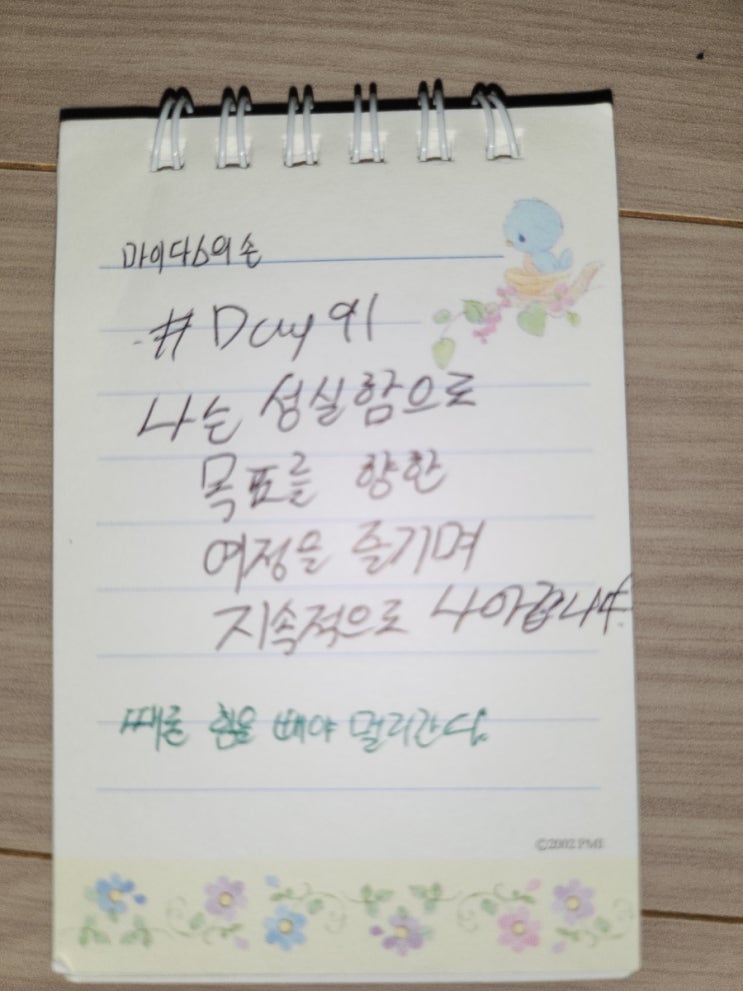 마이다스의 손
# Day 91
나는 성실함으로
목표를 향한
여정을 즐기며
지속적으로 나아갑니다.
때론 힘을 빼야 멀리간다
©2002 PMI